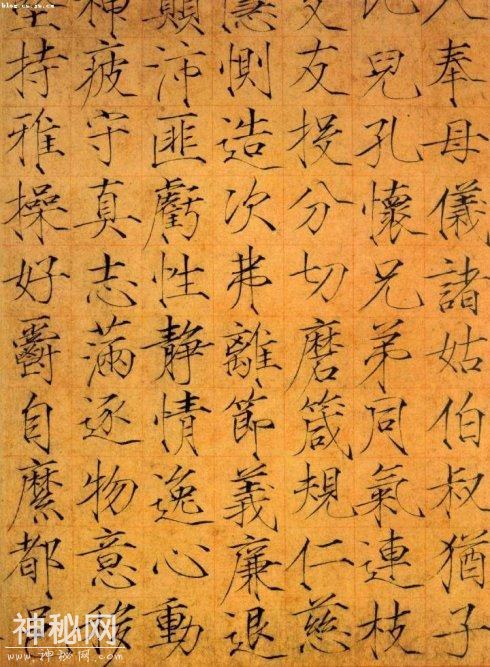 入奉母儀諸姑伯叔猶子
比兒孔懷兄弟同氣連枝
交友投分切磨箴規仁慈
隱惻造次弗離節義廉退
顛沛匪虧性靜情逸心動
神疲守真志滿逐物意
堅持雅操好爵自縻都
神秘网
www.神秘网.com